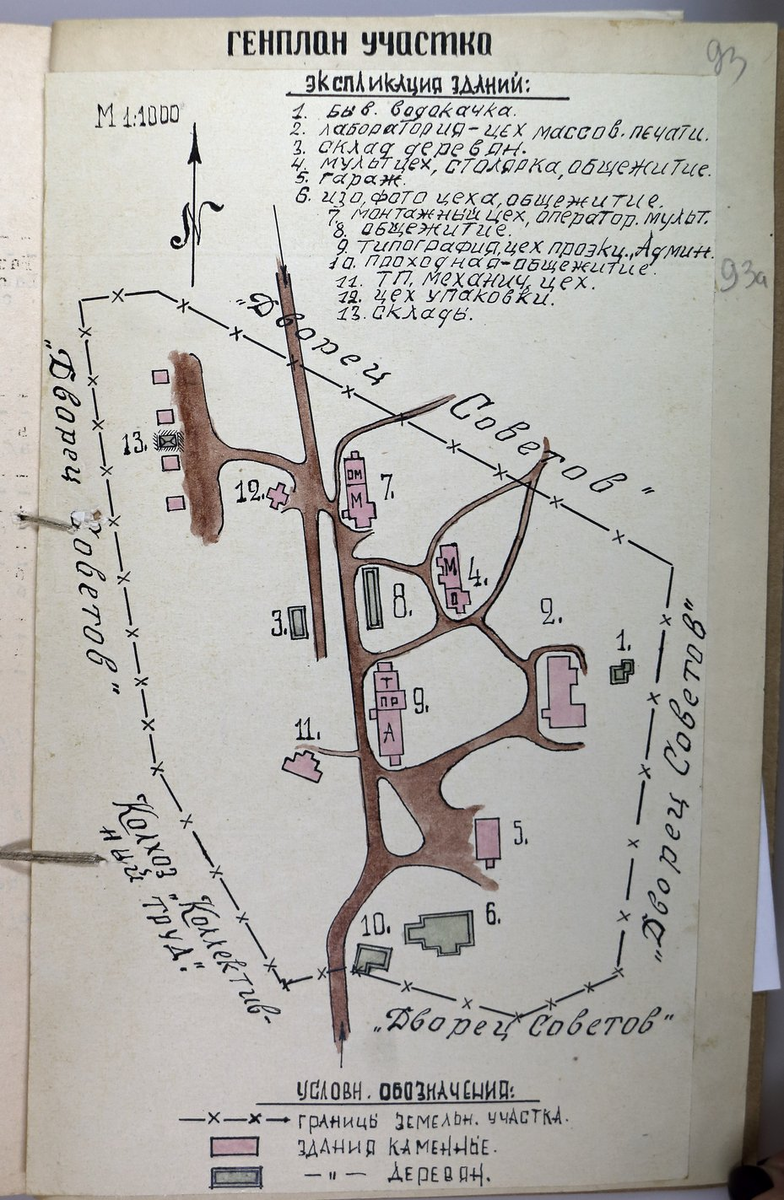 93
ГЕНПЛАН УЧАСТКА
М 1:1000
ЭКСПЛИКАЦИЯ ЗДАНИЙ:
1. БЫВ. ВОДОКАЧКА.
2. ЛАБОРАТОРИЯ-ЦЕХ МАССОВ. ПЕЧАТИ.
3. СКЛАД ДЕРЕВЯН.
4. МУЛЬТЦЕХ, СТОЛЯРКА, ОБЩЕЖИТИЕ.
5. ГАРАЖ.
6. ИЗО, ФОТО ЦЕХА, ОБЩЕЖИТИЕ.
7. МОНТАЖНЫЙ ЦЕХ, ОПЕРАТОР. МУЛЬТ.
8. ОБЩЕЖИТИЕ.
9. ТИПОГРАФИЯ, ЦЕХ ПРОЭКЦ., АДМИН.
10. ПРОХОДНАЯ-ОБЩЕЖИТИЕ.
11. ТП, МЕХАНИЧ. ЦЕХ.
12. ЦЕХ УПАКОВКИ.
13. СКЛАДЫ.
93а
N
"Дворец Советов"
"Дворец Советов"
13.
12.
ОМ
М
7.
М
П
4.
8.
3.
2.
1.
Т
ПР
А
9.
11.
"Дворец Советов"
5.
"Колхоз "Коллектив-
ный труд."
6.
10.
"Дворец Советов"
УСЛОВН. ОБОЗНАЧЕНИЯ:
ГРАНИЦЫ ЗЕМЕЛЬН. УЧАСТКА.
ЗДАНИЯ КАМЕННЫЕ.
— „ — ДЕРЕВЯН.